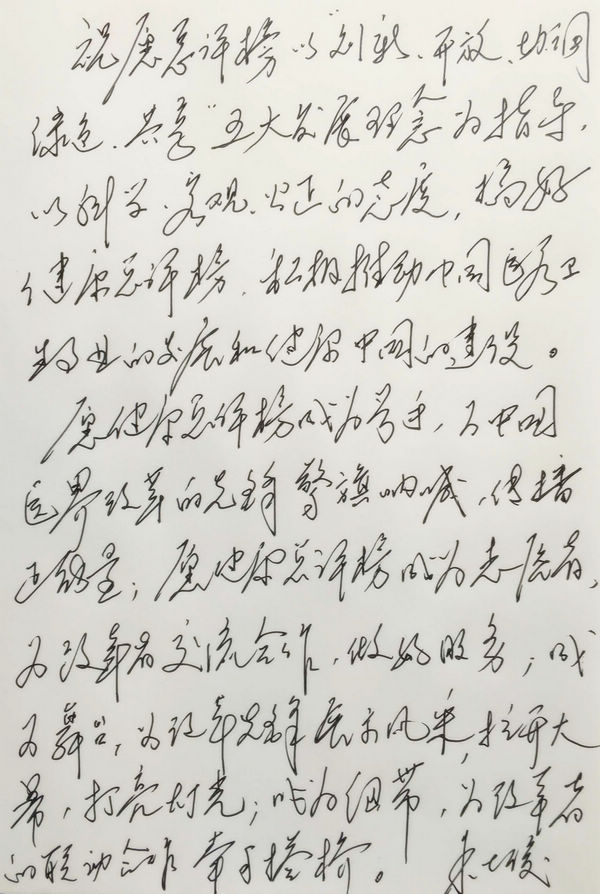 祝愿总评榜以“创新、开放、协调
绿色、共享”五大发展理念为指导，
以科学、客观、公正的态度，搞好
健康总评榜，积极推动中国医药卫
生事业的发展和健康中国的建设。
愿健康总评榜成为号手，为中国
医界改革的先锋擎旗呐喊，传播
正能量；愿健康总评榜成为志愿者，
为改革者交流合作，做好服务；成
为舞台，为改革先锋展示风采，拉开大
幕，打亮灯光；成为纽带，为改革者
的联动合作牵手搭桥。